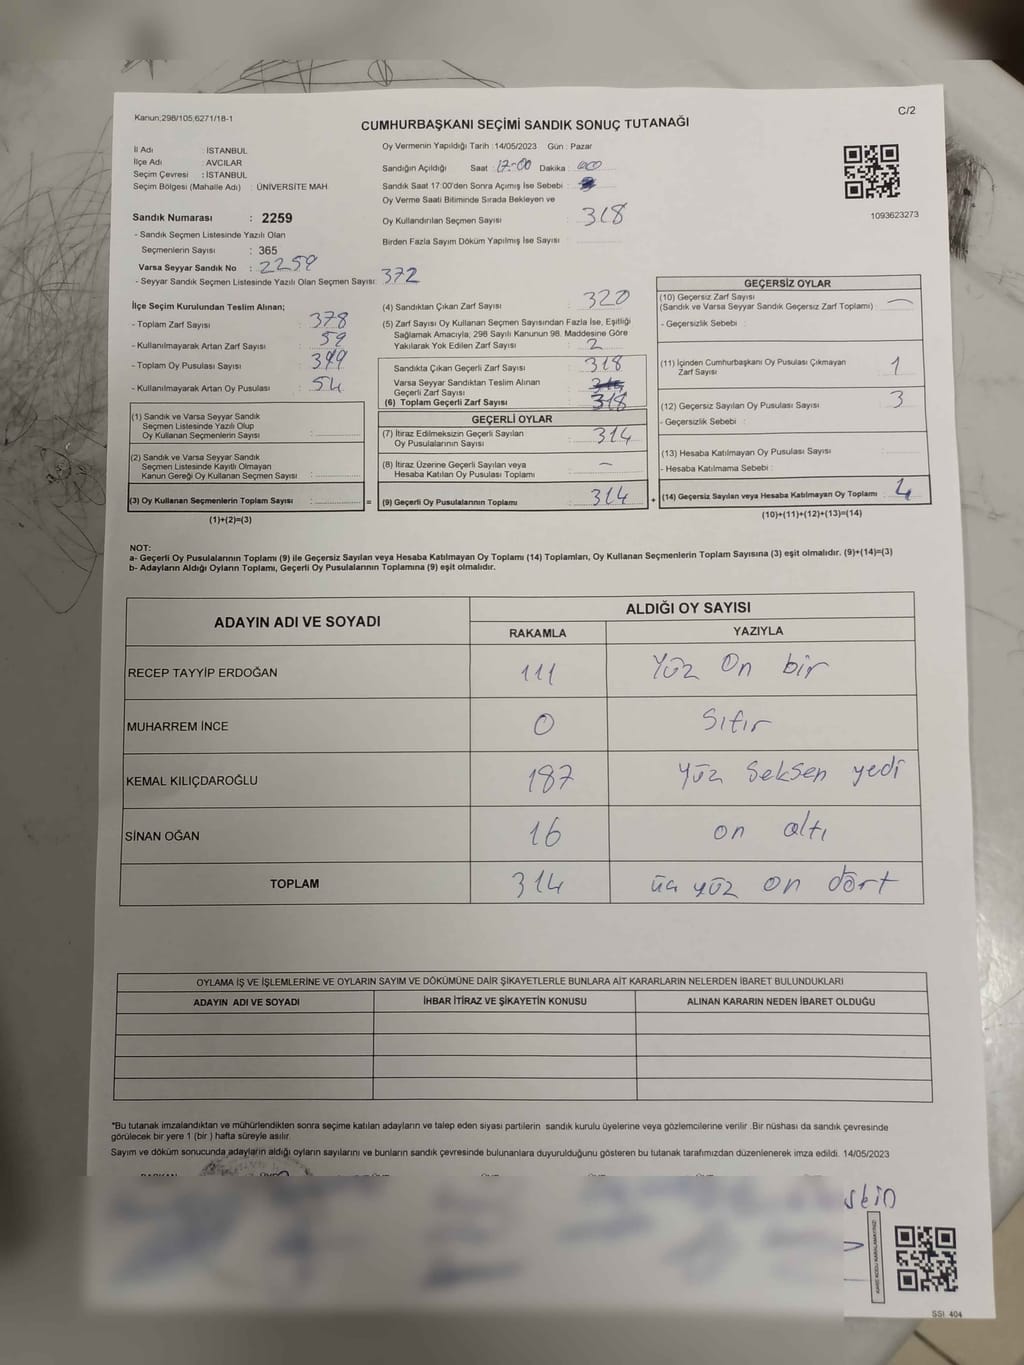 Kanun;298/105;6271/18-1
C/2
CUMHURBAŞKANI SEÇİMİ SANDIK SONUÇ TUTANAĞI
İl Adı : İSTANBUL
İlçe Adı : AVCILAR
Seçim Çevresi : İSTANBUL
Seçim Bölgesi (Mahalle Adı) : ÜNİVERSİTE MAH
Sandık Numarası : 2259
- Sandık Seçmen Listesinde Yazılı Olan
Seçmenlerin Sayısı : 365
Varsa Seyyar Sandık No : 2259
- Seyyar Sandık Seçmen Listesinde Yazılı Olan Seçmen Sayısı: 372
Oy Vermenin Yapıldığı Tarih :14/05/2023 Gün : Pazar
Sandığın Açıldığı Saat : 17:00 Dakika : 00
Sandık Saat 17:00'den Sonra Açımış İse Sebebi :
Oy Verme Saati Bitiminde Sırada Bekleyen ve
Oy Kullandırılan Seçmen Sayısı : 318
Birden Fazla Sayım Döküm Yapılmış İse Sayısı :
1093623273
İlçe Seçim Kurulundan Teslim Alınan;
- Toplam Zarf Sayısı : 378
- Kullanılmayarak Artan Zarf Sayısı : 59
- Toplam Oy Pusulası Sayısı :
- Kullanılmayarak Artan Oy Pusulası : 54
(1) Sandık ve Varsa Seyyar Sandık
Seçmen Listesinde Yazılı Olup
Oy Kullanan Seçmenlerin Sayısı :
(2) Sandık ve Varsa Seyyar Sandık
Seçmen Listesinde Kayıtlı Olmayan
Kanun Gereği Oy Kullanan Seçmen Sayısı :
(3) Oy Kullanan Seçmenlerin Toplam Sayısı : =
(1)+(2)=(3)
(4) Sandıktan Çıkan Zarf Sayısı : 320
(5) Zarf Sayısı Oy Kullanan Seçmen Sayısından Fazla İse, Eşitliği
Sağlamak Amacıyla; 298 Sayılı Kanunun 98. Maddesine Göre
Yakılarak Yok Edilen Zarf Sayısı : 2
Sandıkta Çıkan Geçerli Zarf Sayısı : 318
Varsa Seyyar Sandıktan Teslim Alınan
Geçerli Zarf Sayısı :
(6) Toplam Geçerli Zarf Sayısı : 318
GEÇERLİ OYLAR
(7) İtiraz Edilmeksizin Geçerli Sayılan
Oy Pusulalarının Sayısı : 314
(8) İtiraz Üzerine Geçerli Sayılan veya
Hesaba Katılan Oy Pusulası Toplamı : –
(9) Geçerli Oy Pusulalarının Toplamı : 314 +
GEÇERSİZ OYLAR
(10) Geçersiz Zarf Sayısı
(Sandık ve Varsa Seyyar Sandık Geçersiz Zarf Toplamı) : –
- Geçersizlik Sebebi :
(11) İçinden Cumhurbaşkanı Oy Pusulası Çıkmayan
Zarf Sayısı : 1
(12) Geçersiz Sayılan Oy Pusulası Sayısı : 3
- Geçersizlik Sebebi :
(13) Hesaba Katılmayan Oy Pusulası Sayısı :
- Hesaba Katılmama Sebebi :
(14) Geçersiz Sayılan veya Hesaba Katılmayan Oy Toplamı : 4
(10)+(11)+(12)+(13)=(14)
NOT:
a- Geçerli Oy Pusulalarının Toplamı (9) ile Geçersiz Sayılan veya Hesaba Katılmayan Oy Toplamı (14) Toplamları, Oy Kullanan Seçmenlerin Toplam Sayısına (3) eşit olmalıdır. (9)+(14)=(3)
b- Adayların Aldığı Oyların Toplamı, Geçerli Oy Pusulalarının Toplamına (9) eşit olmalıdır.
ADAYIN ADI VE SOYADI ALDIĞI OY SAYISI
RAKAMLA YAZIYLA
RECEP TAYYİP ERDOĞAN 111 Yüz On bir
MUHARREM İNCE 0 Sıfır
KEMAL KILIÇDAROĞLU 187 Yüz Seksen yedi
SİNAN OĞAN 16 on altı
TOPLAM 314 üç yüz on dört
OYLAMA İŞ VE İŞLEMLERİNE VE OYLARIN SAYIM VE DÖKÜMÜNE DAİR ŞİKAYETLERLE BUNLARA AİT KARARLARIN NELERDEN İBARET BULUNDUKLARI
ADAYIN ADI VE SOYADI İHBAR İTİRAZ VE ŞİKAYETİN KONUSU ALINAN KARARIN NEDEN İBARET OLDUĞU
*Bu tutanak imzalandıktan ve mühürlendikten sonra seçime katılan adayların ve talep eden siyasi partilerin sandık kurulu üyelerine veya gözlemcilerine verilir .Bir nüshası da sandık çevresinde
görülecek bir yere 1 (bir ) hafta süreyle asılır.
Sayım ve döküm sonucunda adayların aldığı oyların sayılarını ve bunların sandık çevresinde bulunanlara duyurulduğunu gösteren bu tutanak tarafımızdan düzenlenerek imza edildi. 14/05/2023
KARE KODU KARALAMAYINIZ!
SSI_404